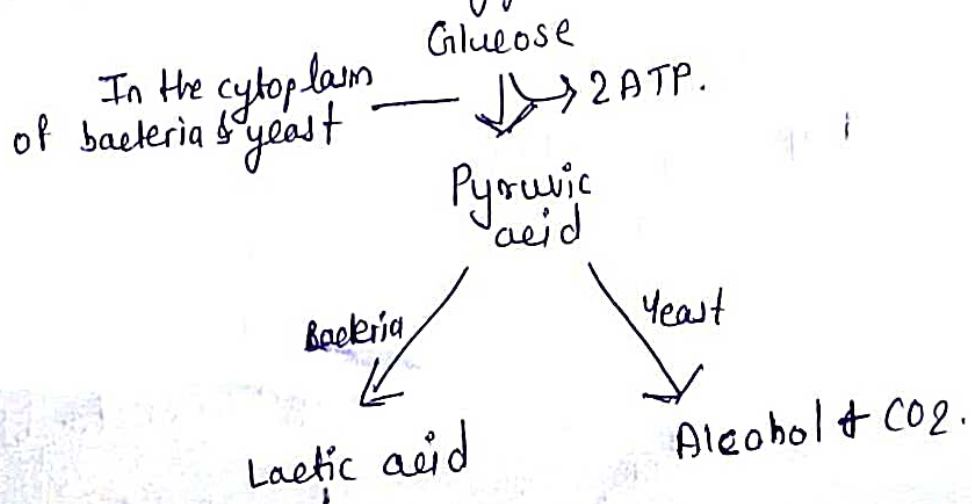 Glucose
In the cytoplasm
of bacteria & yeast
2 ATP.
Pyruvic
acid
Bacteria
Yeast
Lactic acid
Alcohol + CO2.